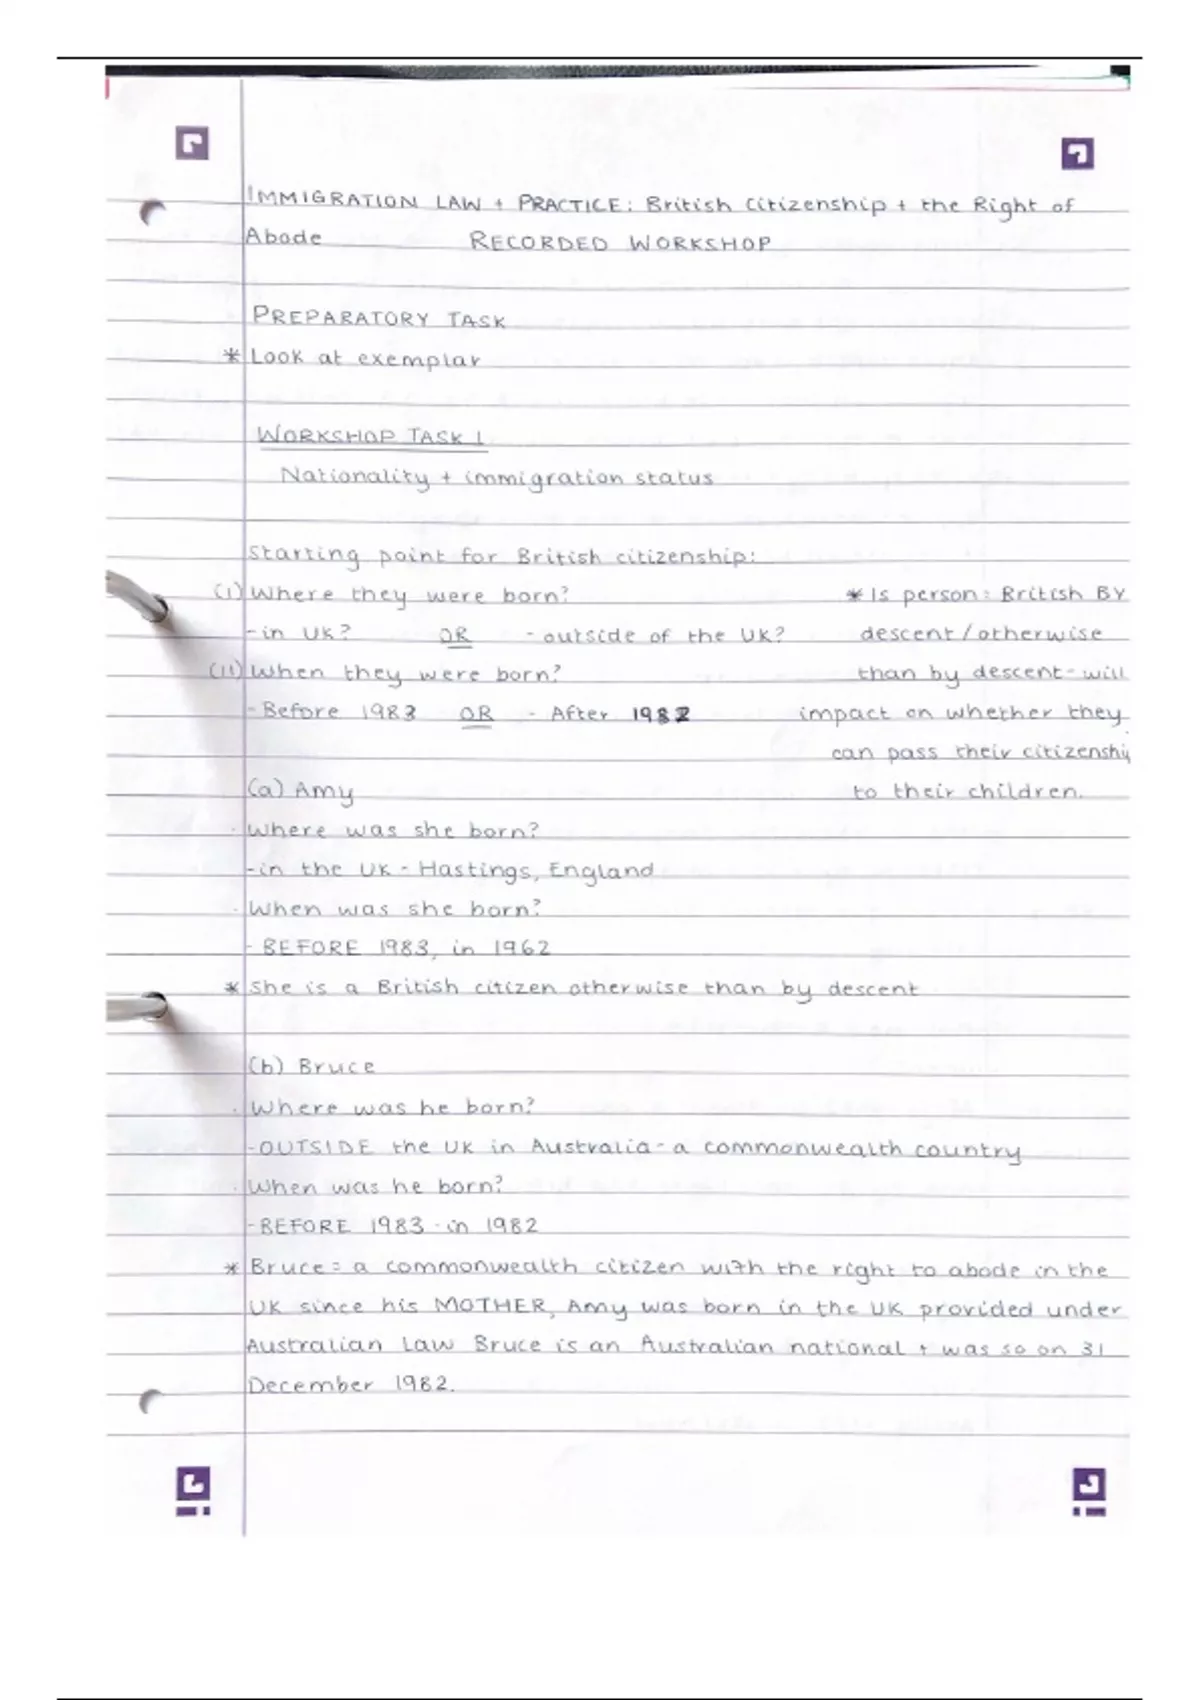 IMMIGRATION LAW + PRACTICE: British Citizenship + the Right of
Abode RECORDED WORKSHOP
PREPARATORY TASK
* Look at exemplar
WORKSHOP TASK 1
Nationality + immigration status
Starting point for British citizenship:
(i) Where they were born? * Is person: British BY
- in UK? OR - outside of the UK? descent / otherwise
(ii) When they were born? than by descent - will
- Before 1983 OR - After 1982 impact on whether they
can pass their citizenshi
(a) Amy to their children.
· Where was she born?
- in the UK - Hastings, England
· When was she born?
- BEFORE 1983, in 1962
* She is a British citizen otherwise than by descent
(b) Bruce
· Where was he born?
- OUTSIDE the UK in Australia - a commonwealth country
· When was he born?
- BEFORE 1983 - in 1982
* Bruce = a commonwealth citizen with the right to abode in the
UK since his MOTHER, Amy was born in the UK provided under
Australian Law Bruce is an Australian national + was so on 31
December 1982.